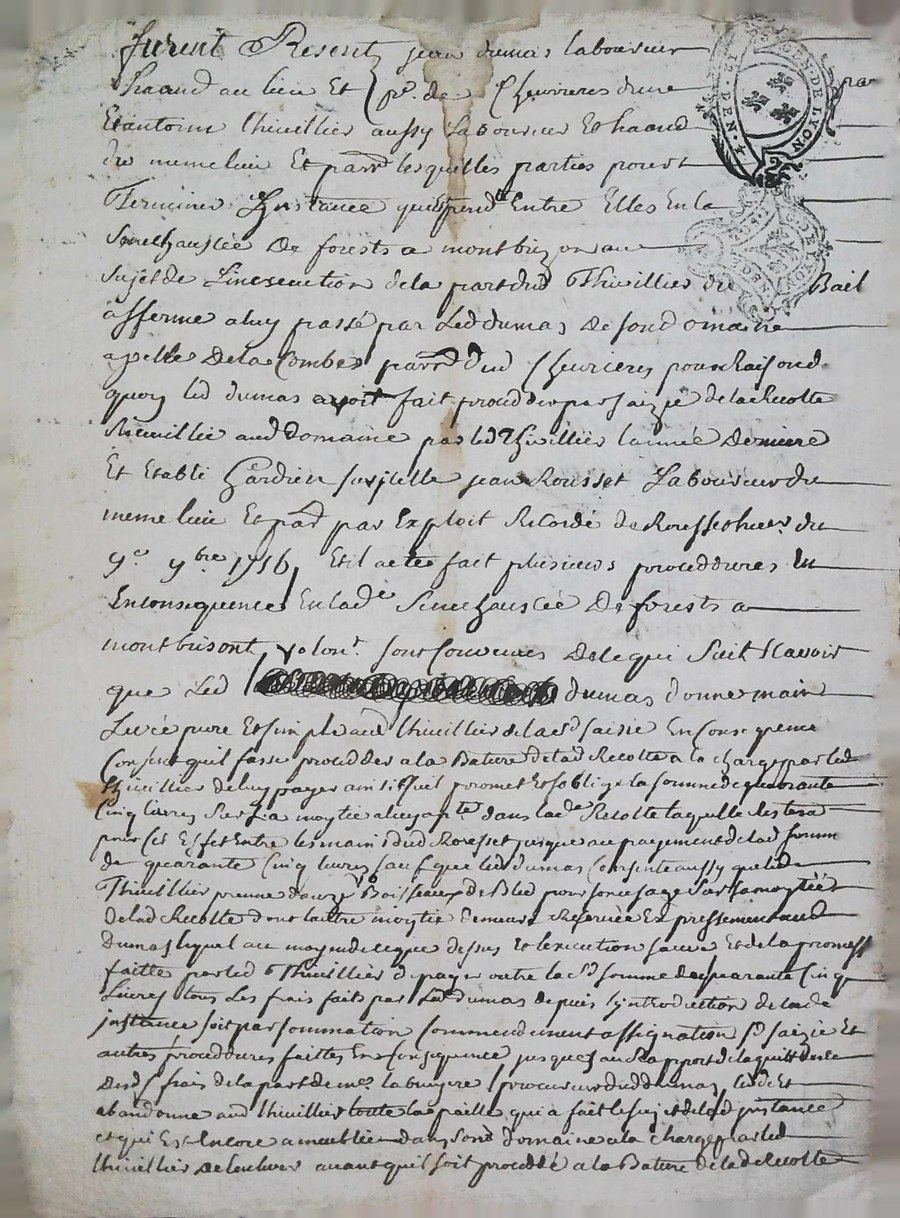 furent Present jean dumas laboureur
Lhaand au lieu Et pr. de Cheurieres dune pra
Et antoine thiuillier aussy Laboureur et haand
du meme lieu Et parr. lesquelles parties pour
Terminer L'instance qui Est pend.te Entre Elles En la
Senechaussée De forests a montbrizon au
Sujet de Linexecution de la part dud Thiuillier du Bail
afferme a luy passé par Led dumas De son domaine
apellé De la Combe parr. dud Cheurieres pour Raison de
quoy led dumas avoit fait proceder par saizie de la Recolte
Receuillie aud Domaine par led Thiuillier lannée Derniere
Et Etabli Gardien sur jcelle jean Rousset Laboureur du
meme lieu Et par. par Exploit Recordé de huer. du
9e 9bre 1716, Et il a ete fait plusieurs proceddures En
Consequence En lade Senechaussée De forests a
montbrisont, sont Conuenues De ce qui Suit Scavoir
que Led dumas donne main
Leuée pure Et simple aud thiuillier de la d saisie En Consequence
Consent quil fasse proceder a la Bature de lad Recolte a la charge par led
thiuillier de luy payer ainsi quil promet Et soblige la somme de quarante
Cinq liures Sur sa moytie dans lade Recolte laquelle Restera
pour cet Effet Entre les mains dud Rousset jusque au payement de lad somme
de quarante Cinq liures sauf que led dumas Consent aussy que led
Thiuillier prenne douze Boisseaux de Bled pour son usage Sur sa moytiée
de lad Recolte dont lautre moytie demeure Reseruée Expressement aud
Dumas lequel au moyen de ce que dessus Et lexecution Et de la promesse
faitte par led Thiuillier de payer outre la d somme de quarante Cinq
Liures tous Les frais faits par Led Dumas depuis lintroduction de lade
jnstance soit par sommation Commandement assignation saizie Et
autres proceddures faittes En Consequence jusques au Rapport de la quittance
desd frais de la part de me. labruyere procureur dud Dumas, Cede Et
abandonne aud thiuillier toute la paille qui a fait le sujet de lad jnstance
et qui Est Encore dans sond domaine a la charge par led
thiuillier De auant quil soit proceddé a la Bature de lad Recolte
GEN. DE LYON